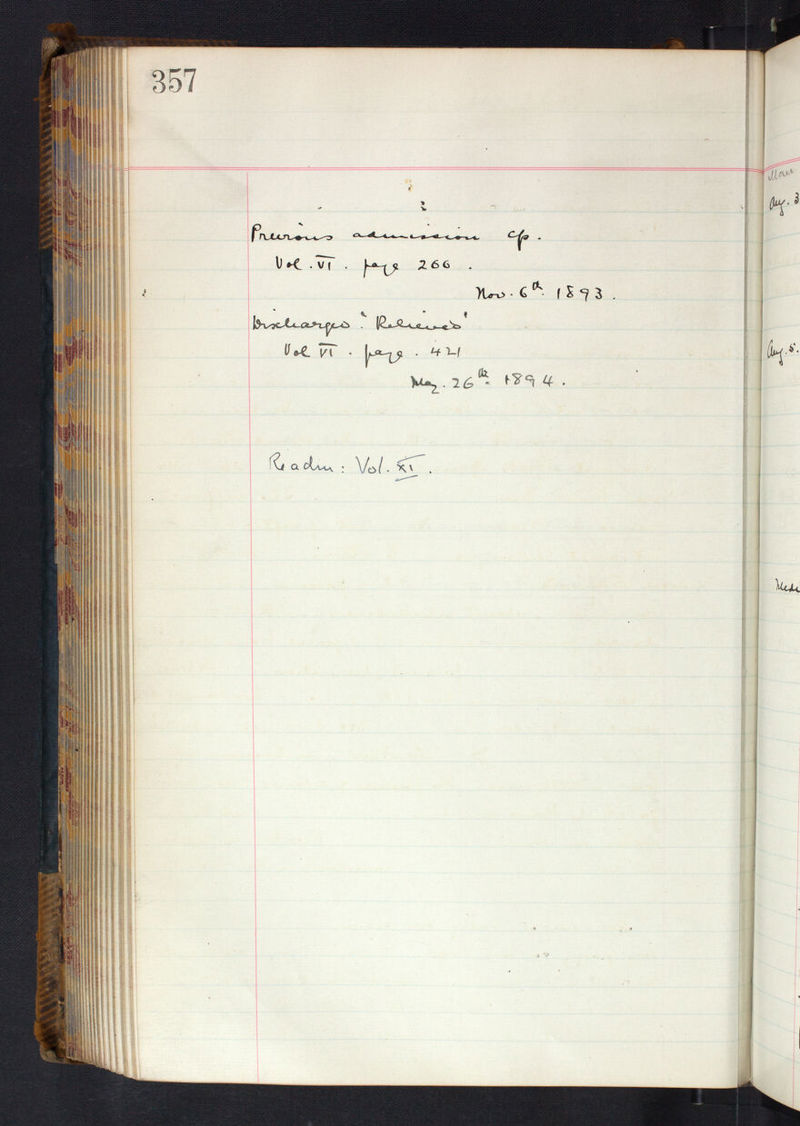 357
Previous admission cf.
Vol. VI. page 266.
Nov. 6th. 1893.
Discharged "Relieved"
Vol VI. page. 421
May. 26th. 1894.
Readm: Vol. XI.
Aug. 3
Aug. 5.